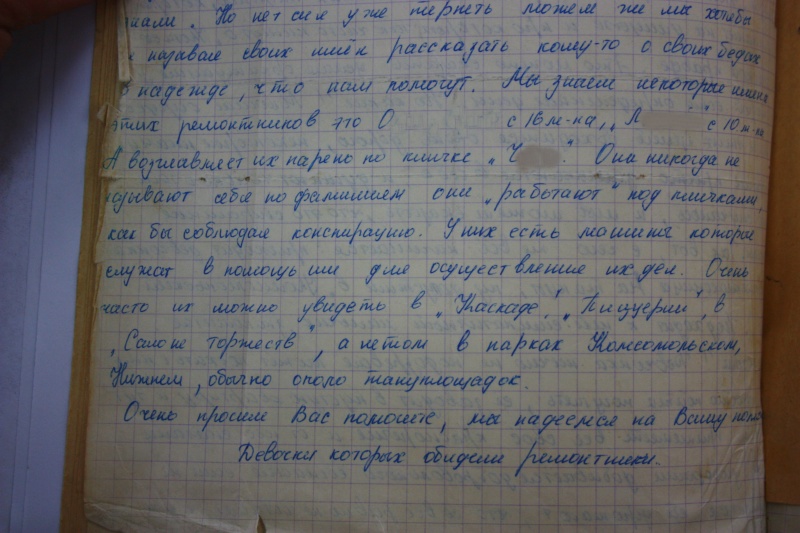 нами. Но нет сил уже терпеть можем же мы хотябы
назвав своих имён рассказать кому-то о своих бедах
надежде, что нам помогут. Мы знаем некоторые имена
этих ремонтников это О с 16 м-на, „Л " с 10 м-на
А возглавляет их парень по кличке „Ч ." Они никогда не
называют себя по фамилиям они „работают" под кличками,
как бы соблюдая конспирацию. У них есть машины которые
служат в помощь им для осуществления их дел. Очень
часто их можно увидеть в „Каскаде", „Пиццерии", в
„Салоне торжеств", а летом в парках Комсомольском,
Нижнем, обычно около танцплощадок.
Очень просим Вас помогите, мы надеемся на Вашу
Девочки которых обидели ремонтники.